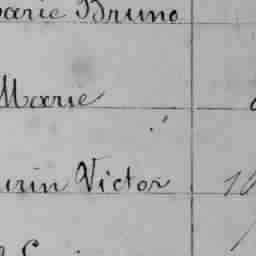 Marie Bruno
Marie
urin Victor 10